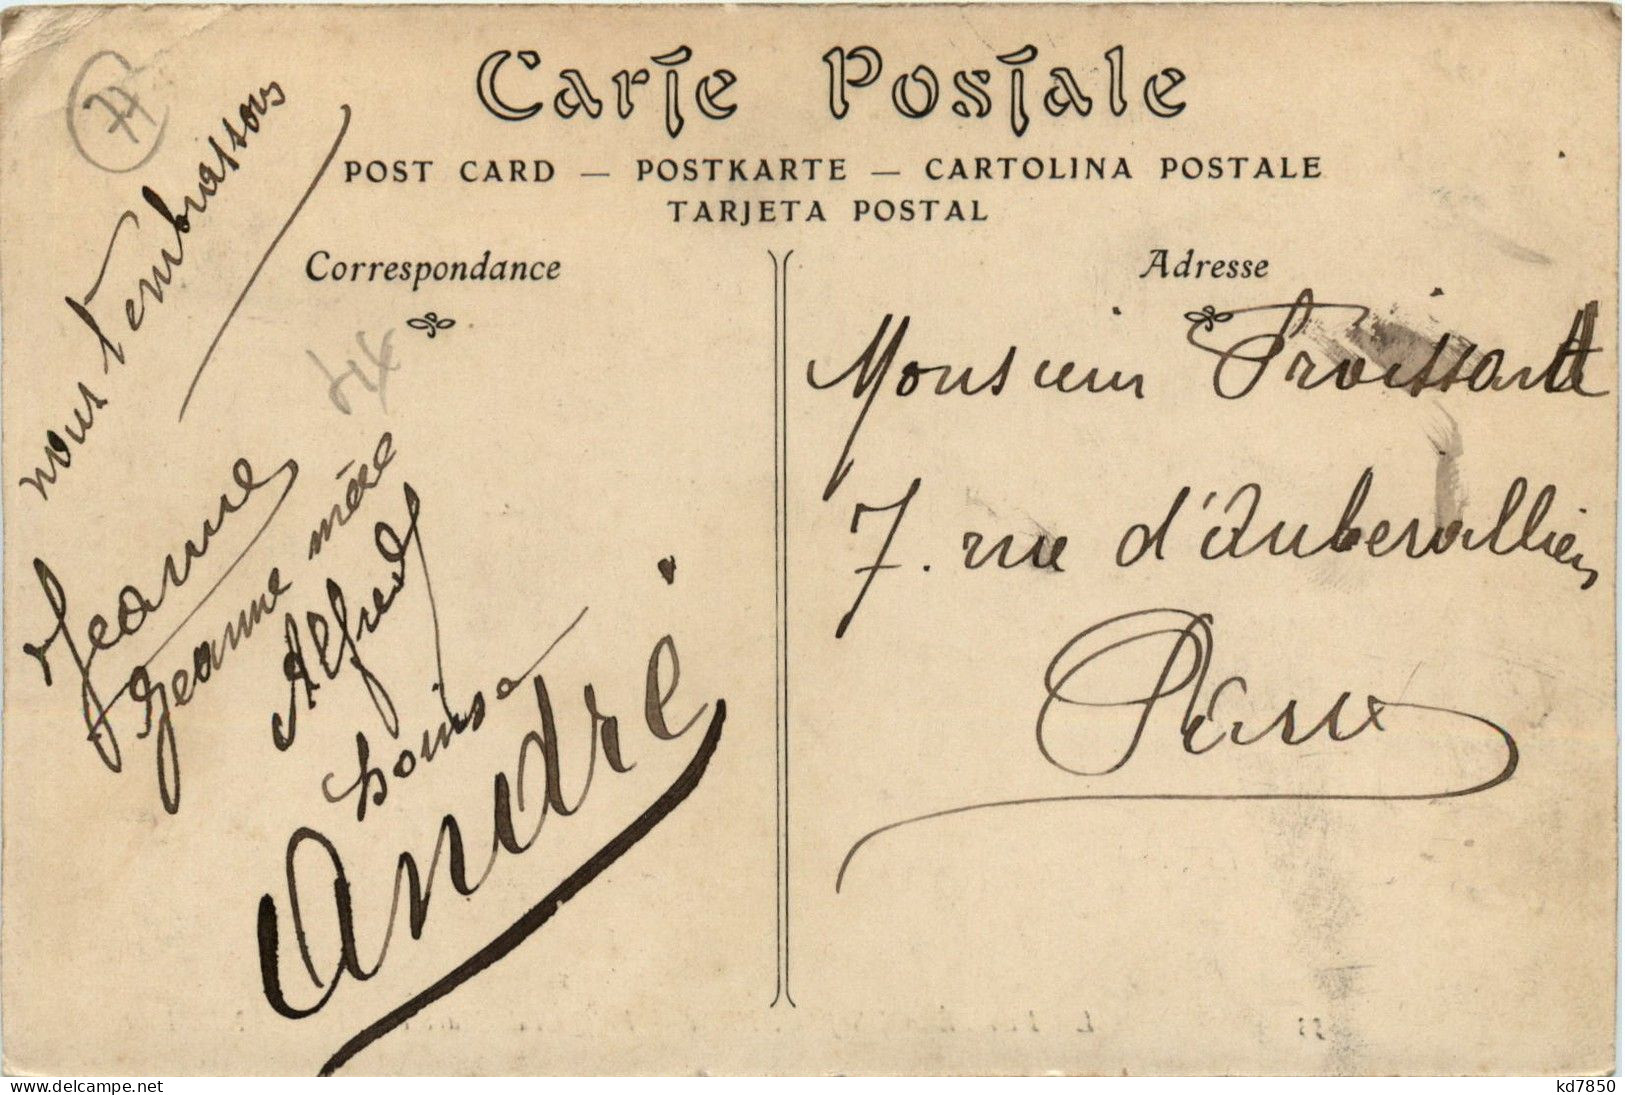 77
Carte Postale
POST CARD — POSTKARTE — CARTOLINA POSTALE
TARJETA POSTAL
Correspondance
Adresse
nous t'embrassons
Jeanne
Jeanne mère
Alfred
Louisa
André
Monsieur Froissart
7. rue d'Aubervilliers
Paris
www.delcampe.net
kd7850